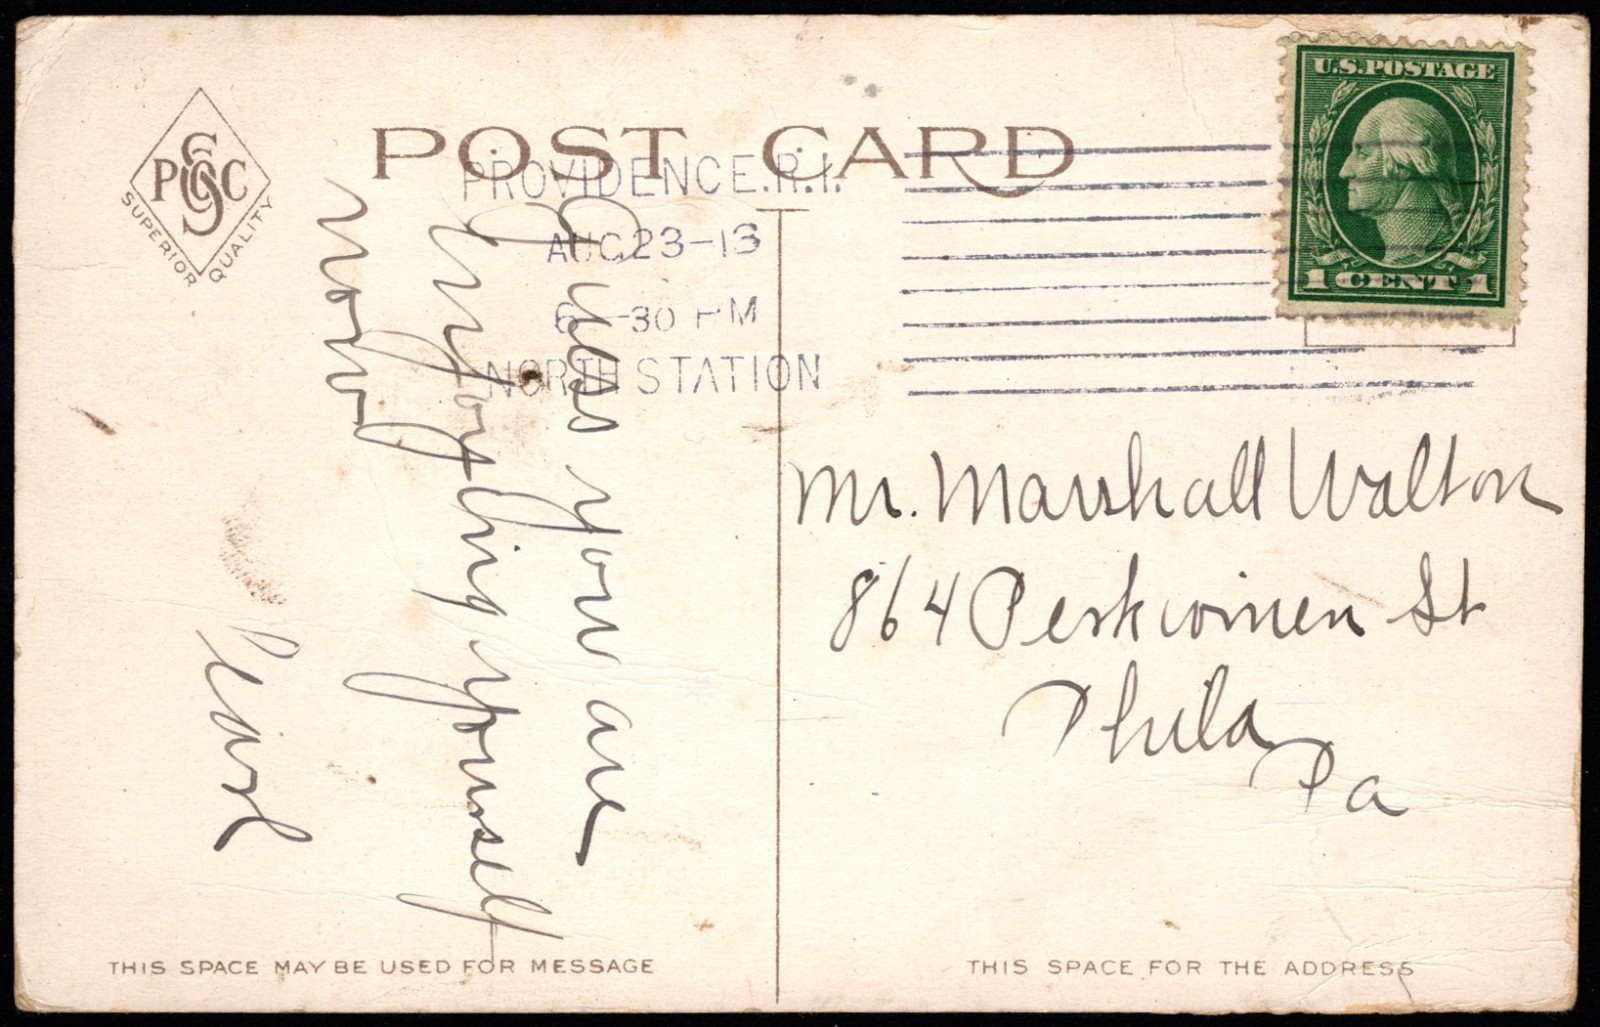 PSCC
SUPERIOR QUALITY
POST CARD
U.S. POSTAGE
1 CENT 1
PROVIDENCE. R.I.
AUG 23-13
6-30 PM
NORTH STATION
Guess you are
enjoying yourself
now
Pearl
Mr. Marshall Walton
864 Perkiomen St
Phila
Pa
THIS SPACE MAY BE USED FOR MESSAGE
THIS SPACE FOR THE ADDRESS